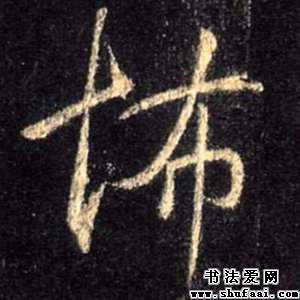 怖
书法爱网
www.shufaai.com